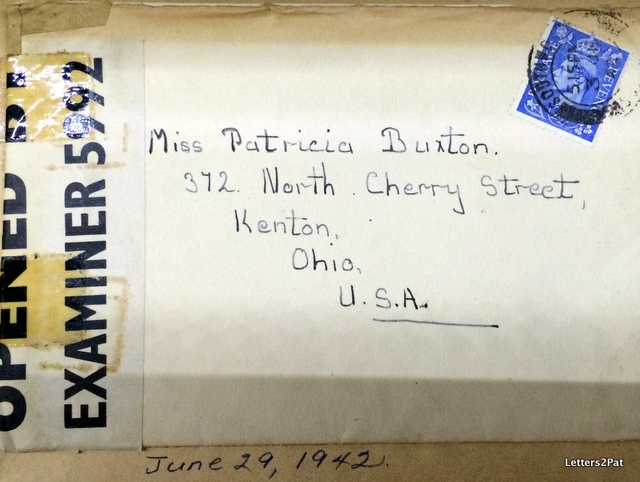 OPENED BY
EXAMINER 5992
5.15 PM
Miss Patricia Buxton.
372. North Cherry Street,
Kenton,
Ohio,
U.S.A.
June 29, 1942.
Letters2Pat